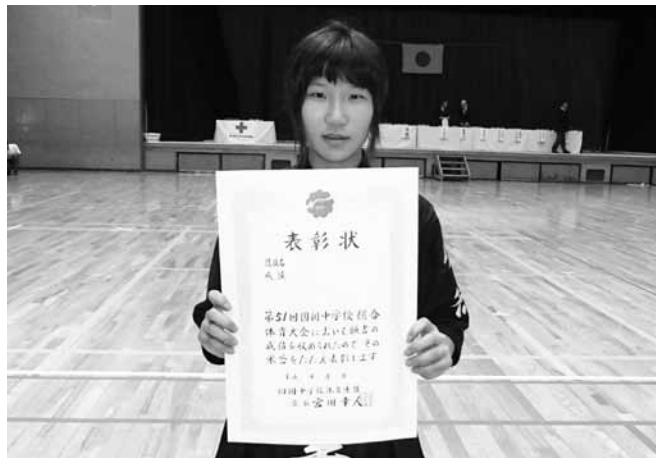 表彰状
競技名
成績
第51回四国中学校総合
体育大会において頭書の
成績を収められたので その
栄誉をたたえ表彰します
平成 年 月 日
四国中学校体育連盟
会長 宮田幸人